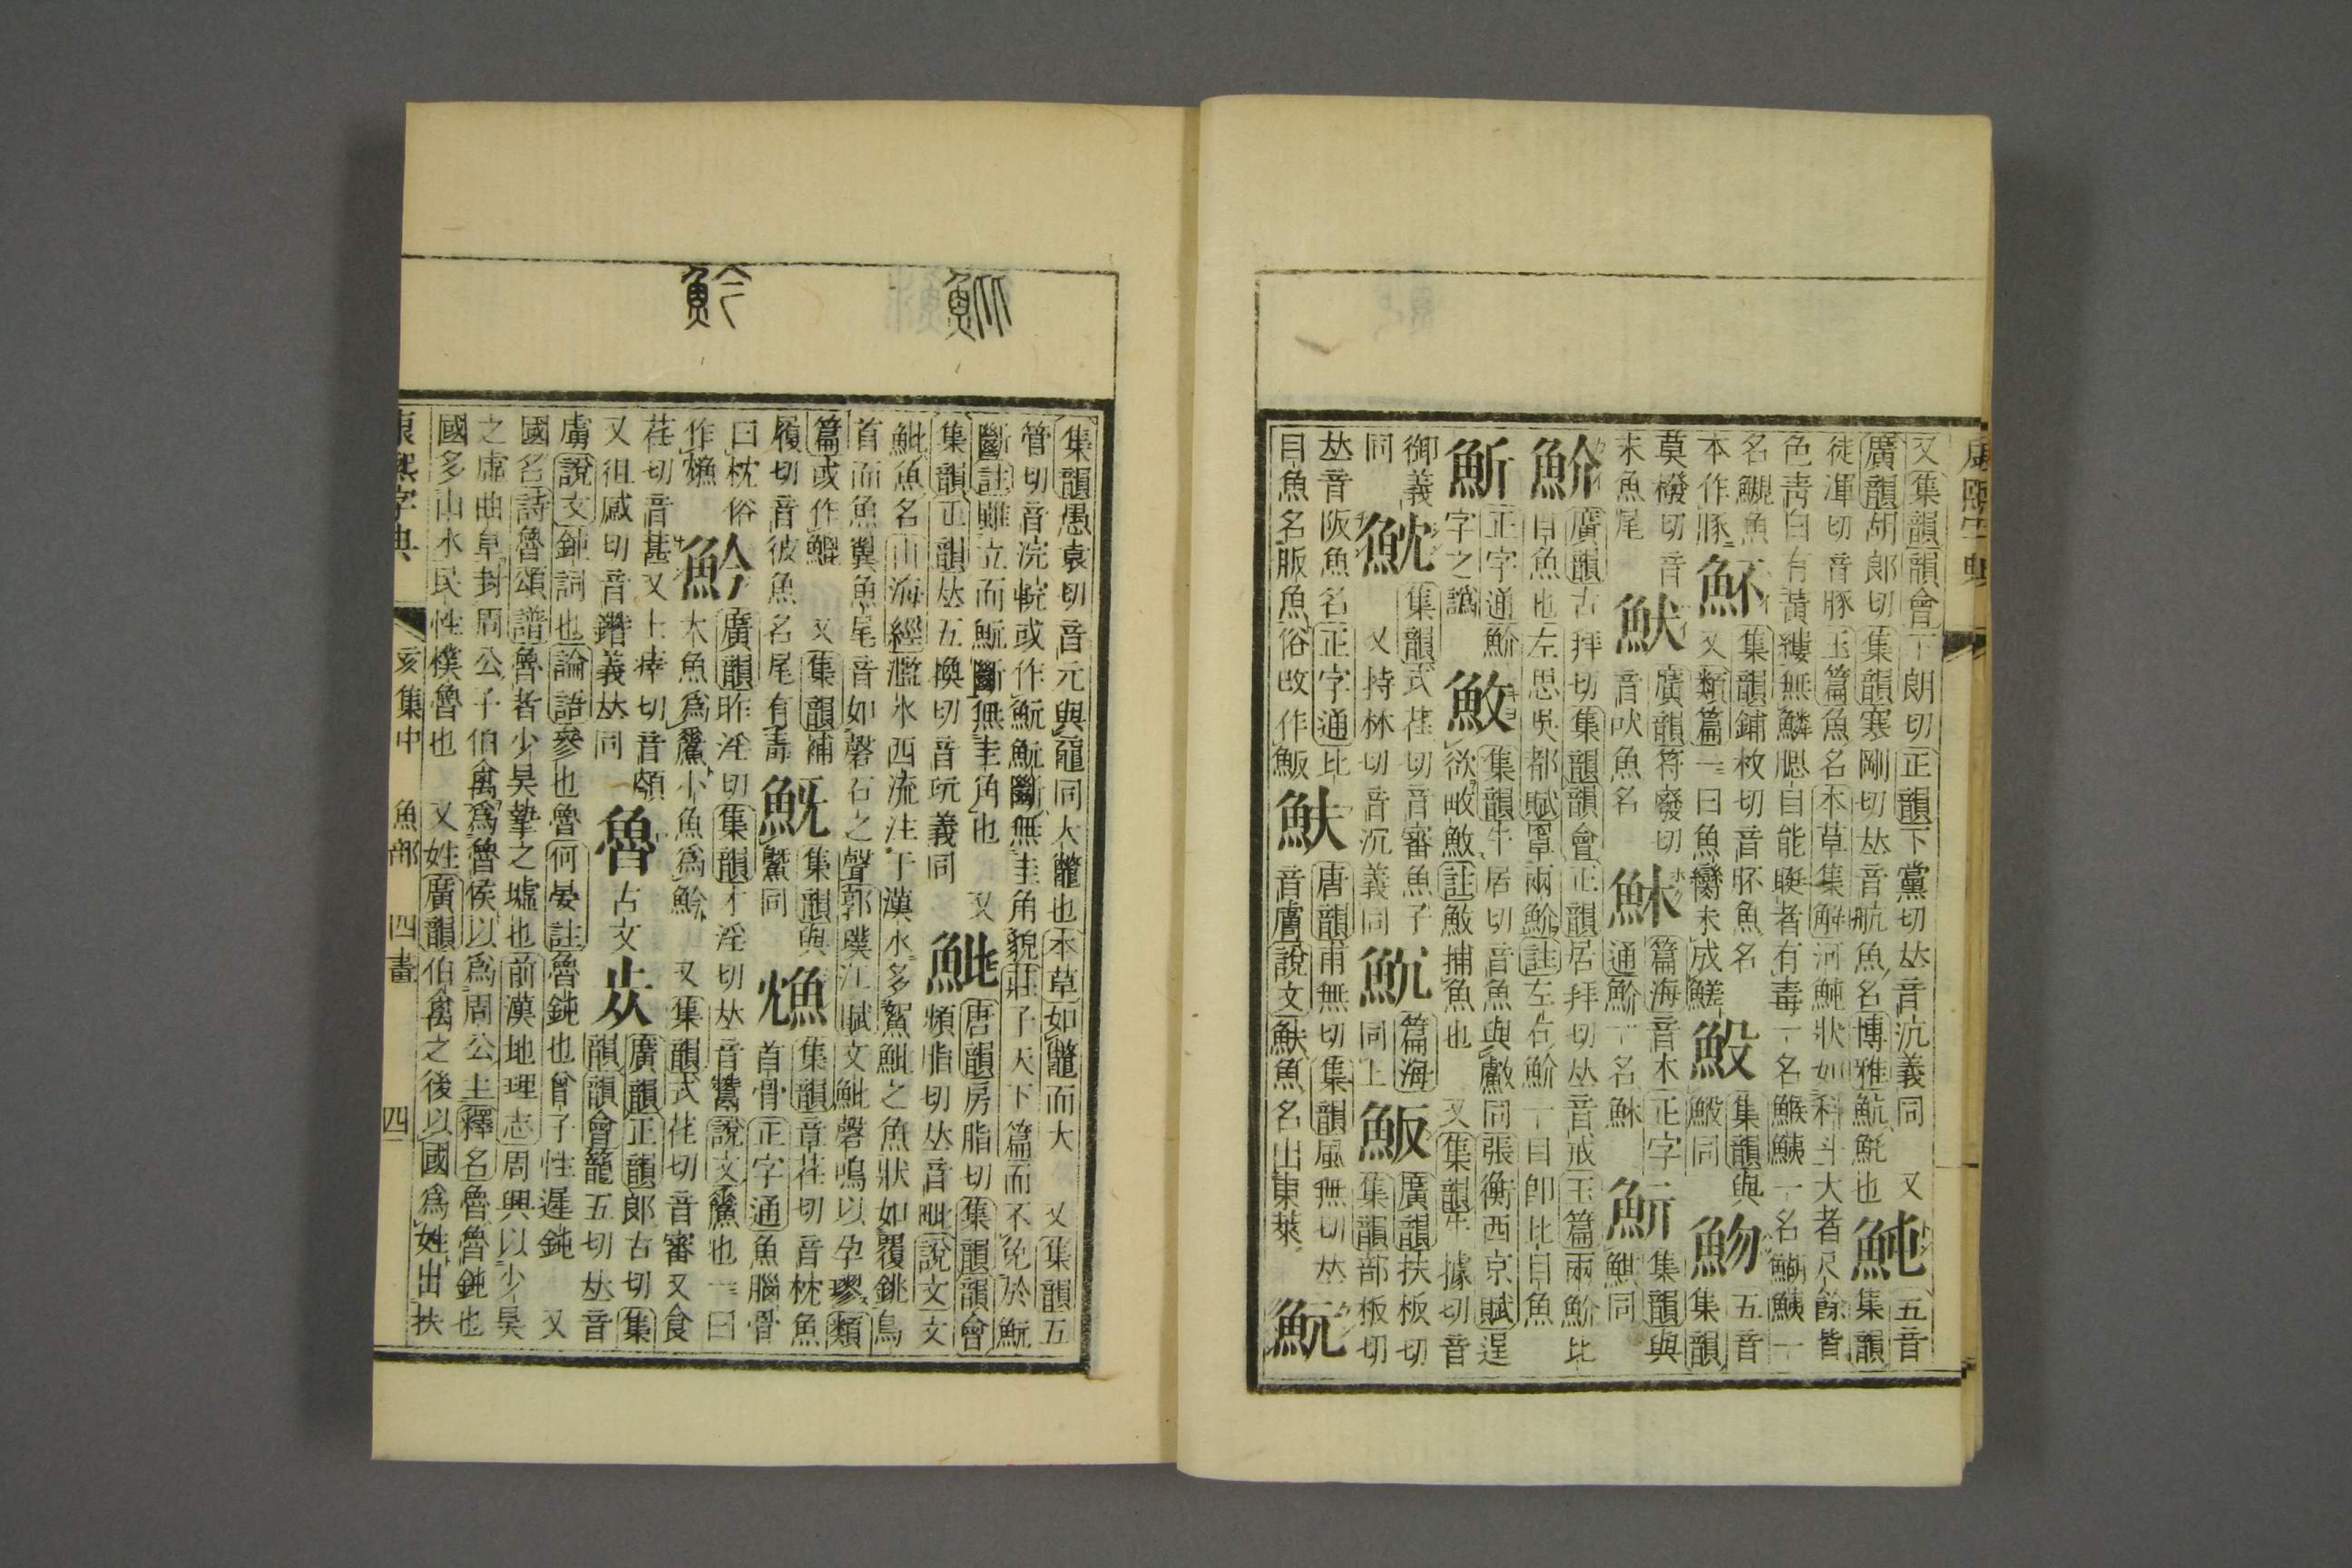 康熙字典
又集韻韻會下朗切正韻下黨切𠀤音沆義同　又
廣韻胡郎切集韻寒剛切𠀤音航魚名博雅魧也
魨
五音
集韻
徒渾切音豚玉篇魚名本草集解河魨狀如科斗大者尺餘皆
色靑白有黃縷無鱗腮目能睫者有毒一名鯸鮧一名鰗鮧一
名魚
本作豚
魾
集韻鋪枚切音肧魚名
又類篇一曰魚未成鱃
集韻與
同
魩
五音
集韻
莫撥切音
末魚尾
廣韻符廢切
音吠魚名
篇海音木正字
通魪一名
集韻與
同
魪
廣韻古拜切集韻韻會正韻居拜切𠀤音戒玉篇兩魪比
目魚也左思吳都賦罩兩魪註左右魪一曰卽比目魚
正字通魪
字之譌
䰻
集韻牛居切音魚與同張衡西京賦逞
欲畋䰻註䰻捕魚也　又集韻牛據切音
御義
同
魫
集韻式荏切音審魚子
又持林切音沉義同
篇海
同上
魬
廣韻扶板切
集韻部板切
𠀤音阪魚名正字通比
目魚名魚俗改作魬
鈇
唐韻甫無切集韻風無切𠀤
音膚說文魚名出東萊
魭
集韻愚袁切音元與黿同大鼈也本草如鼈而大　又集韻五
管切音浣輐或作魭魭斷無圭角貌莊子天下篇而不免於魭
斷註雖立而魭斷無圭角也　又
集韻正韻𠀤五換切音玩義同
魮
唐韻房脂切集韻韻會
頻脂切𠀤音毗說文文
魮魚名山海經濫水西流注于漢水多鴽魮之魚狀如覆銚鳥
首而魚翼魚尾音如磬石之聲郭璞江賦文魮磬鳴以孕璆類
篇或作䱃　又集韻補
履切音彼魚名尾有毒
集韻與
同
集韻章荏切音枕魚
首骨正字通魚腦骨
曰枕俗
作
魿
廣韻昨淫切集韻才淫切𠀤音鬵說文也一曰
大魚爲小魚爲魿　又集韻式荏切音審又食
荏切音甚又上瘁切音顉
又徂感切音義𠀤同
魯
古文
㫺
廣韻正韻郞古切集
韻韻會籠五切𠀤音
虜說文鈍詞也論語參也魯何晏註魯鈍也曾子性遲鈍　又
國名詩魯頌譜魯者少昊摯之墟也前漢地理志周興以少昊
之虛曲阜封周公子伯禽爲魯侯以爲周公主釋名魯魯鈍也
國多山水民性樸魯也　又姓廣韻伯禽之後以國爲姓出扶
康熙字典　亥集中　魚部　四畫　四